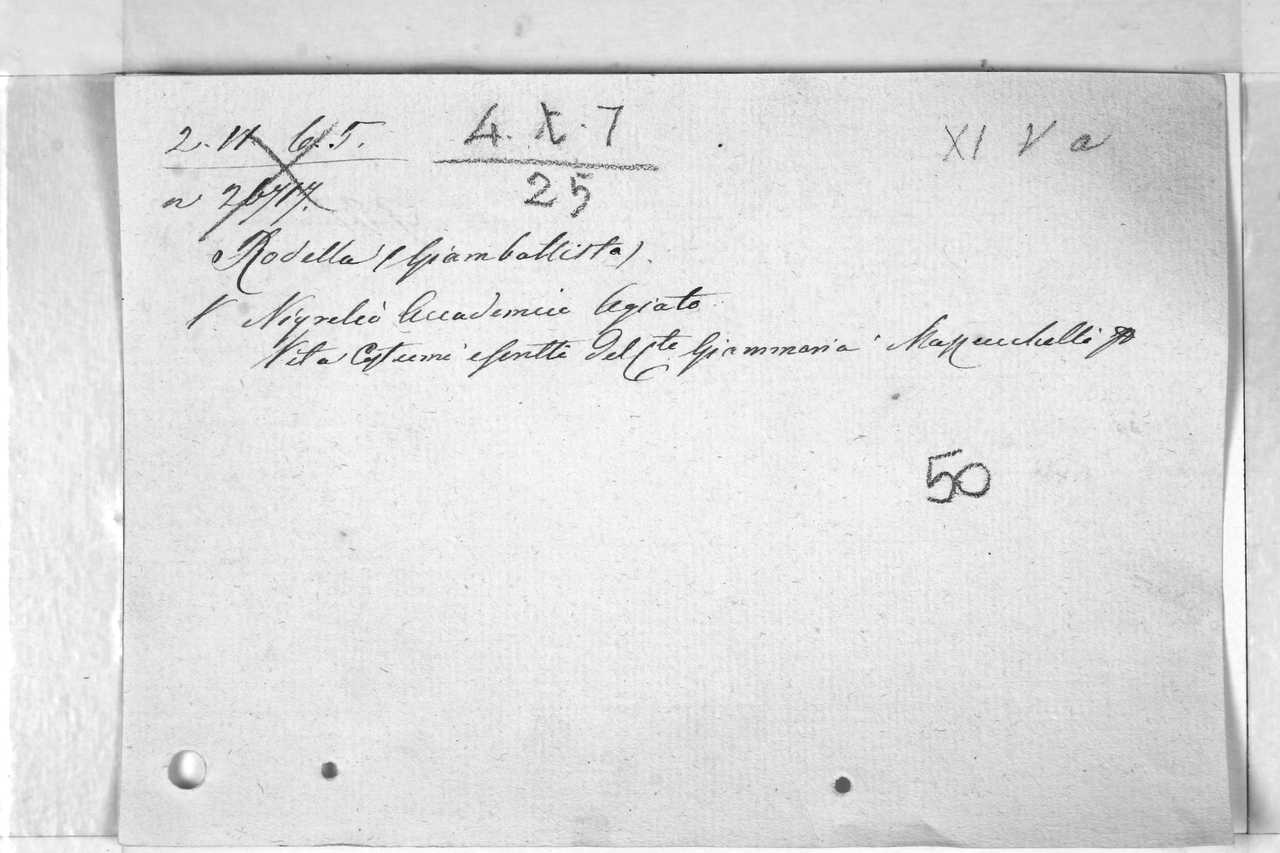 2. VI 6. 5.
4. X. 7
XI V a
25
n 26717.
Rodella (Giambattista).
V. Nigrelio Accademico Agiato
Vita Costumi e scritti del Cte Giammaria Mazzuchelli
50